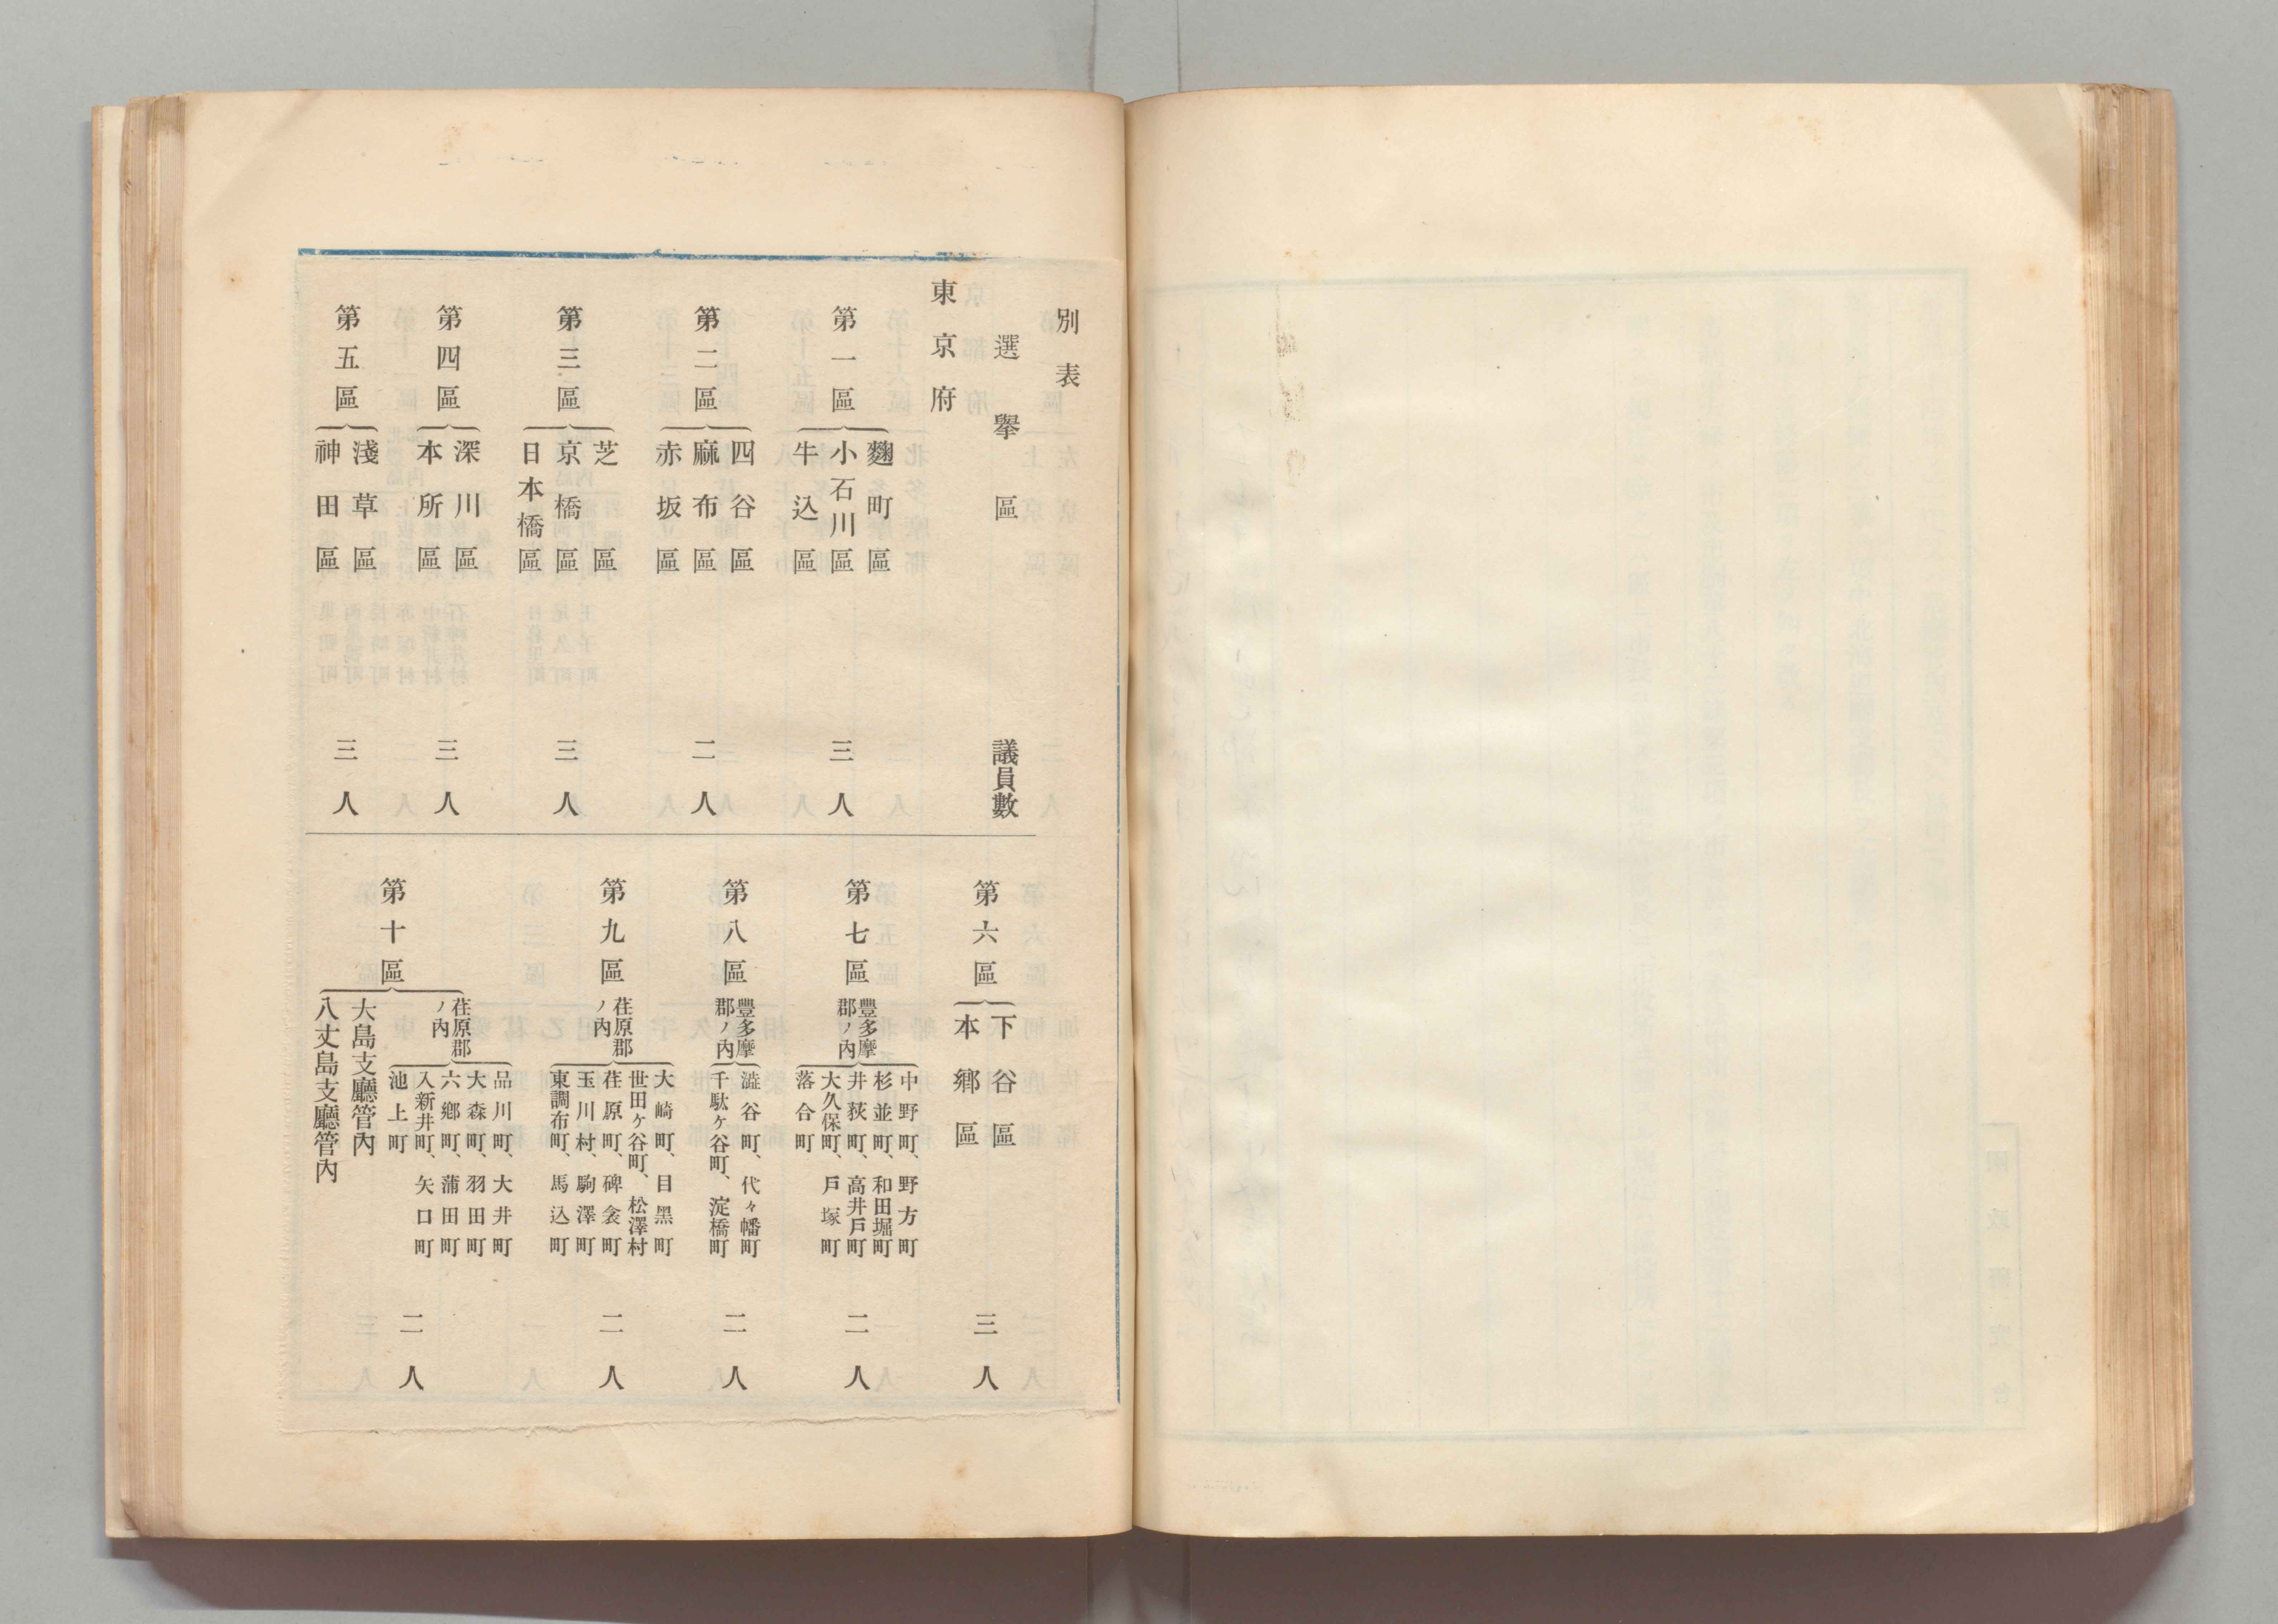 別表
選擧區
議員數
東京府
第一區
麴町區
小石川區
牛込區
三人
第二區
四谷區
麻布區
赤坂區
二人
第三區
芝區
京橋區
日本橋區
三人
第四區
深川區
本所區
三人
第五區
淺草區
神田區
三人
第六區
下谷區
本鄕區
三人
第七區
豐多摩
郡ノ內
中野町、野方町
杉並町、和田堀町
井荻町、高井戶町
大久保町、戶塚町
落合町
二人
第八區
豐多摩
郡ノ內
澁谷町、代々幡町
千駄ケ谷町、淀橋町
二人
第九區
荏原郡
ノ內
大崎町、目黑町
世田ケ谷町、松澤村
荏原町、碑衾町
玉川村、駒澤町
東調布町、馬込町
二人
第十區
荏原郡
ノ內
品川町、大井町
大森町、羽田町
六鄕町、蒲田町
入新井町、矢口町
池上町
大島支廳管內
八丈島支廳管內
二人